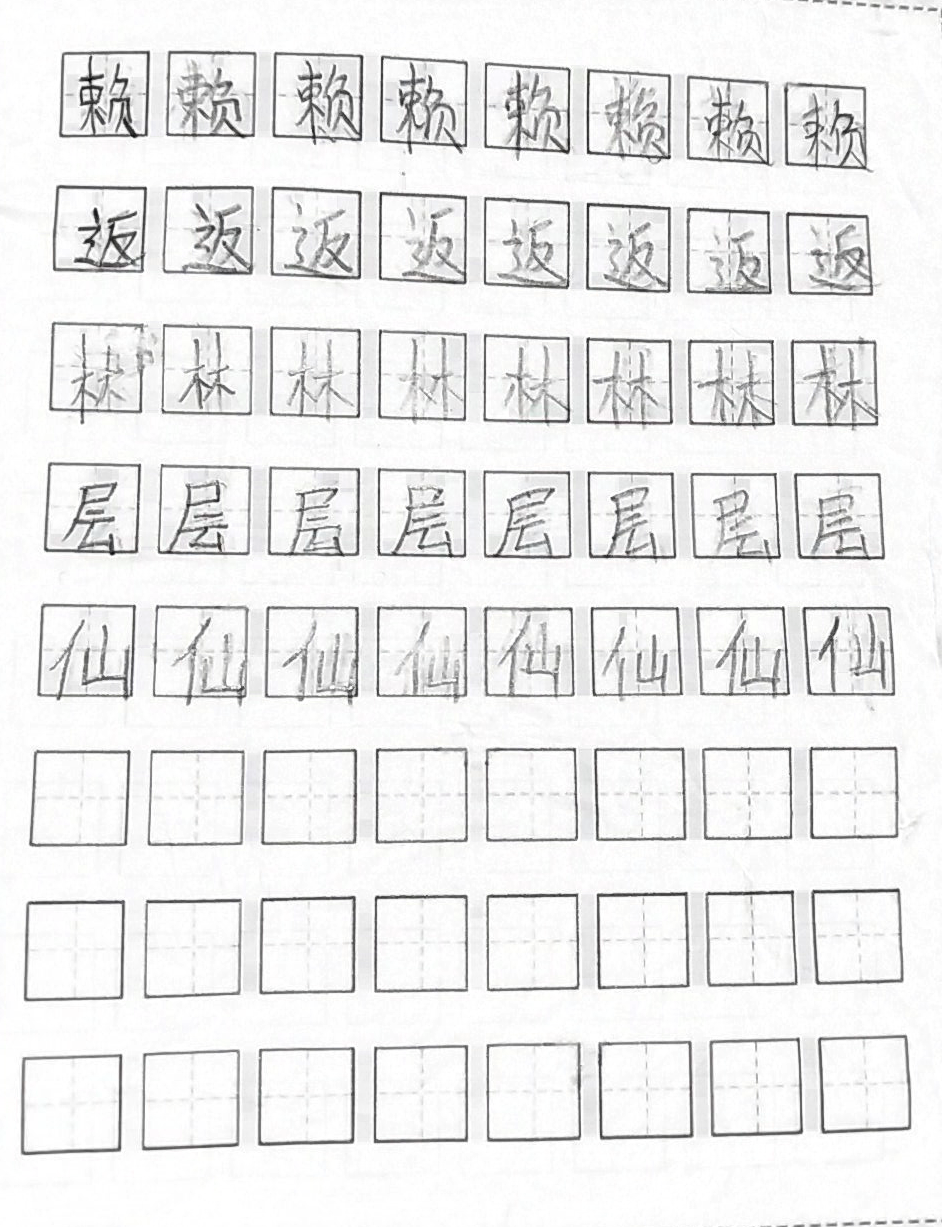 赖赖赖赖赖赖赖赖
返返返返返返返返
林林林林林林林林
层层层层层层层层
仙仙仙仙仙仙仙仙